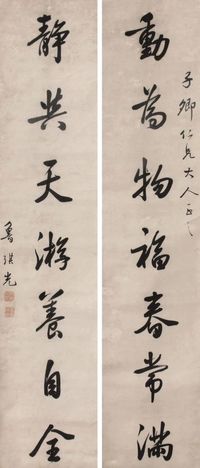 子卿仁兄大人正之
動為物福春常滿
静共天游養自全
魯琪光